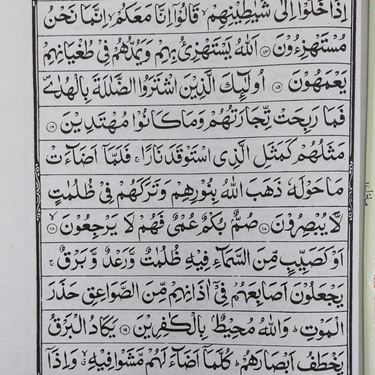 اِذَا خَلَوْا اِلٰى شَيٰطِيْنِهِمْ ۙ قَالُوْۤا اِنَّا مَعَكُمْ ۙ اِنَّمَا نَحْنُ
مُسْتَهْزِءُوْنَ ۝۱۴ اَللّٰهُ يَسْتَهْزِئُ بِهِمْ وَيَمُدُّهُمْ فِيْ طُغْيَانِهِمْ
يَعْمَهُوْنَ ۝۱۵ اُولٰٓئِكَ الَّذِيْنَ اشْتَرَوُا الضَّلٰلَةَ بِالْهُدٰى ۪
فَمَا رَبِحَتْ تِّجَارَتُهُمْ وَمَا كَانُوْا مُهْتَدِيْنَ ۝۱۶
مَثَلُهُمْ كَمَثَلِ الَّذِي اسْتَوْقَدَ نَارًا ۚ فَلَمَّاۤ اَضَآءَتْ
مَا حَوْلَهٗ ذَهَبَ اللّٰهُ بِنُوْرِهِمْ وَتَرَكَهُمْ فِيْ ظُلُمٰتٍ
لَّا يُبْصِرُوْنَ ۝۱۷ صُمٌّۢ بُكْمٌ عُمْيٌ فَهُمْ لَا يَرْجِعُوْنَ ۝۱۸
اَوْ كَصَيِّبٍ مِّنَ السَّمَآءِ فِيْهِ ظُلُمٰتٌ وَّرَعْدٌ وَّبَرْقٌ ۚ
يَجْعَلُوْنَ اَصَابِعَهُمْ فِيْۤ اٰذَانِهِمْ مِّنَ الصَّوَاعِقِ حَذَرَ
الْمَوْتِ ؕ وَاللّٰهُ مُحِيْطٌۢ بِالْكٰفِرِيْنَ ۝۱۹ يَكَادُ الْبَرْقُ
يَخْطَفُ اَبْصَارَهُمْ ؕ كُلَّمَاۤ اَضَآءَ لَهُمْ مَّشَوْا فِيْهِ ۙ وَاِذَاۤ